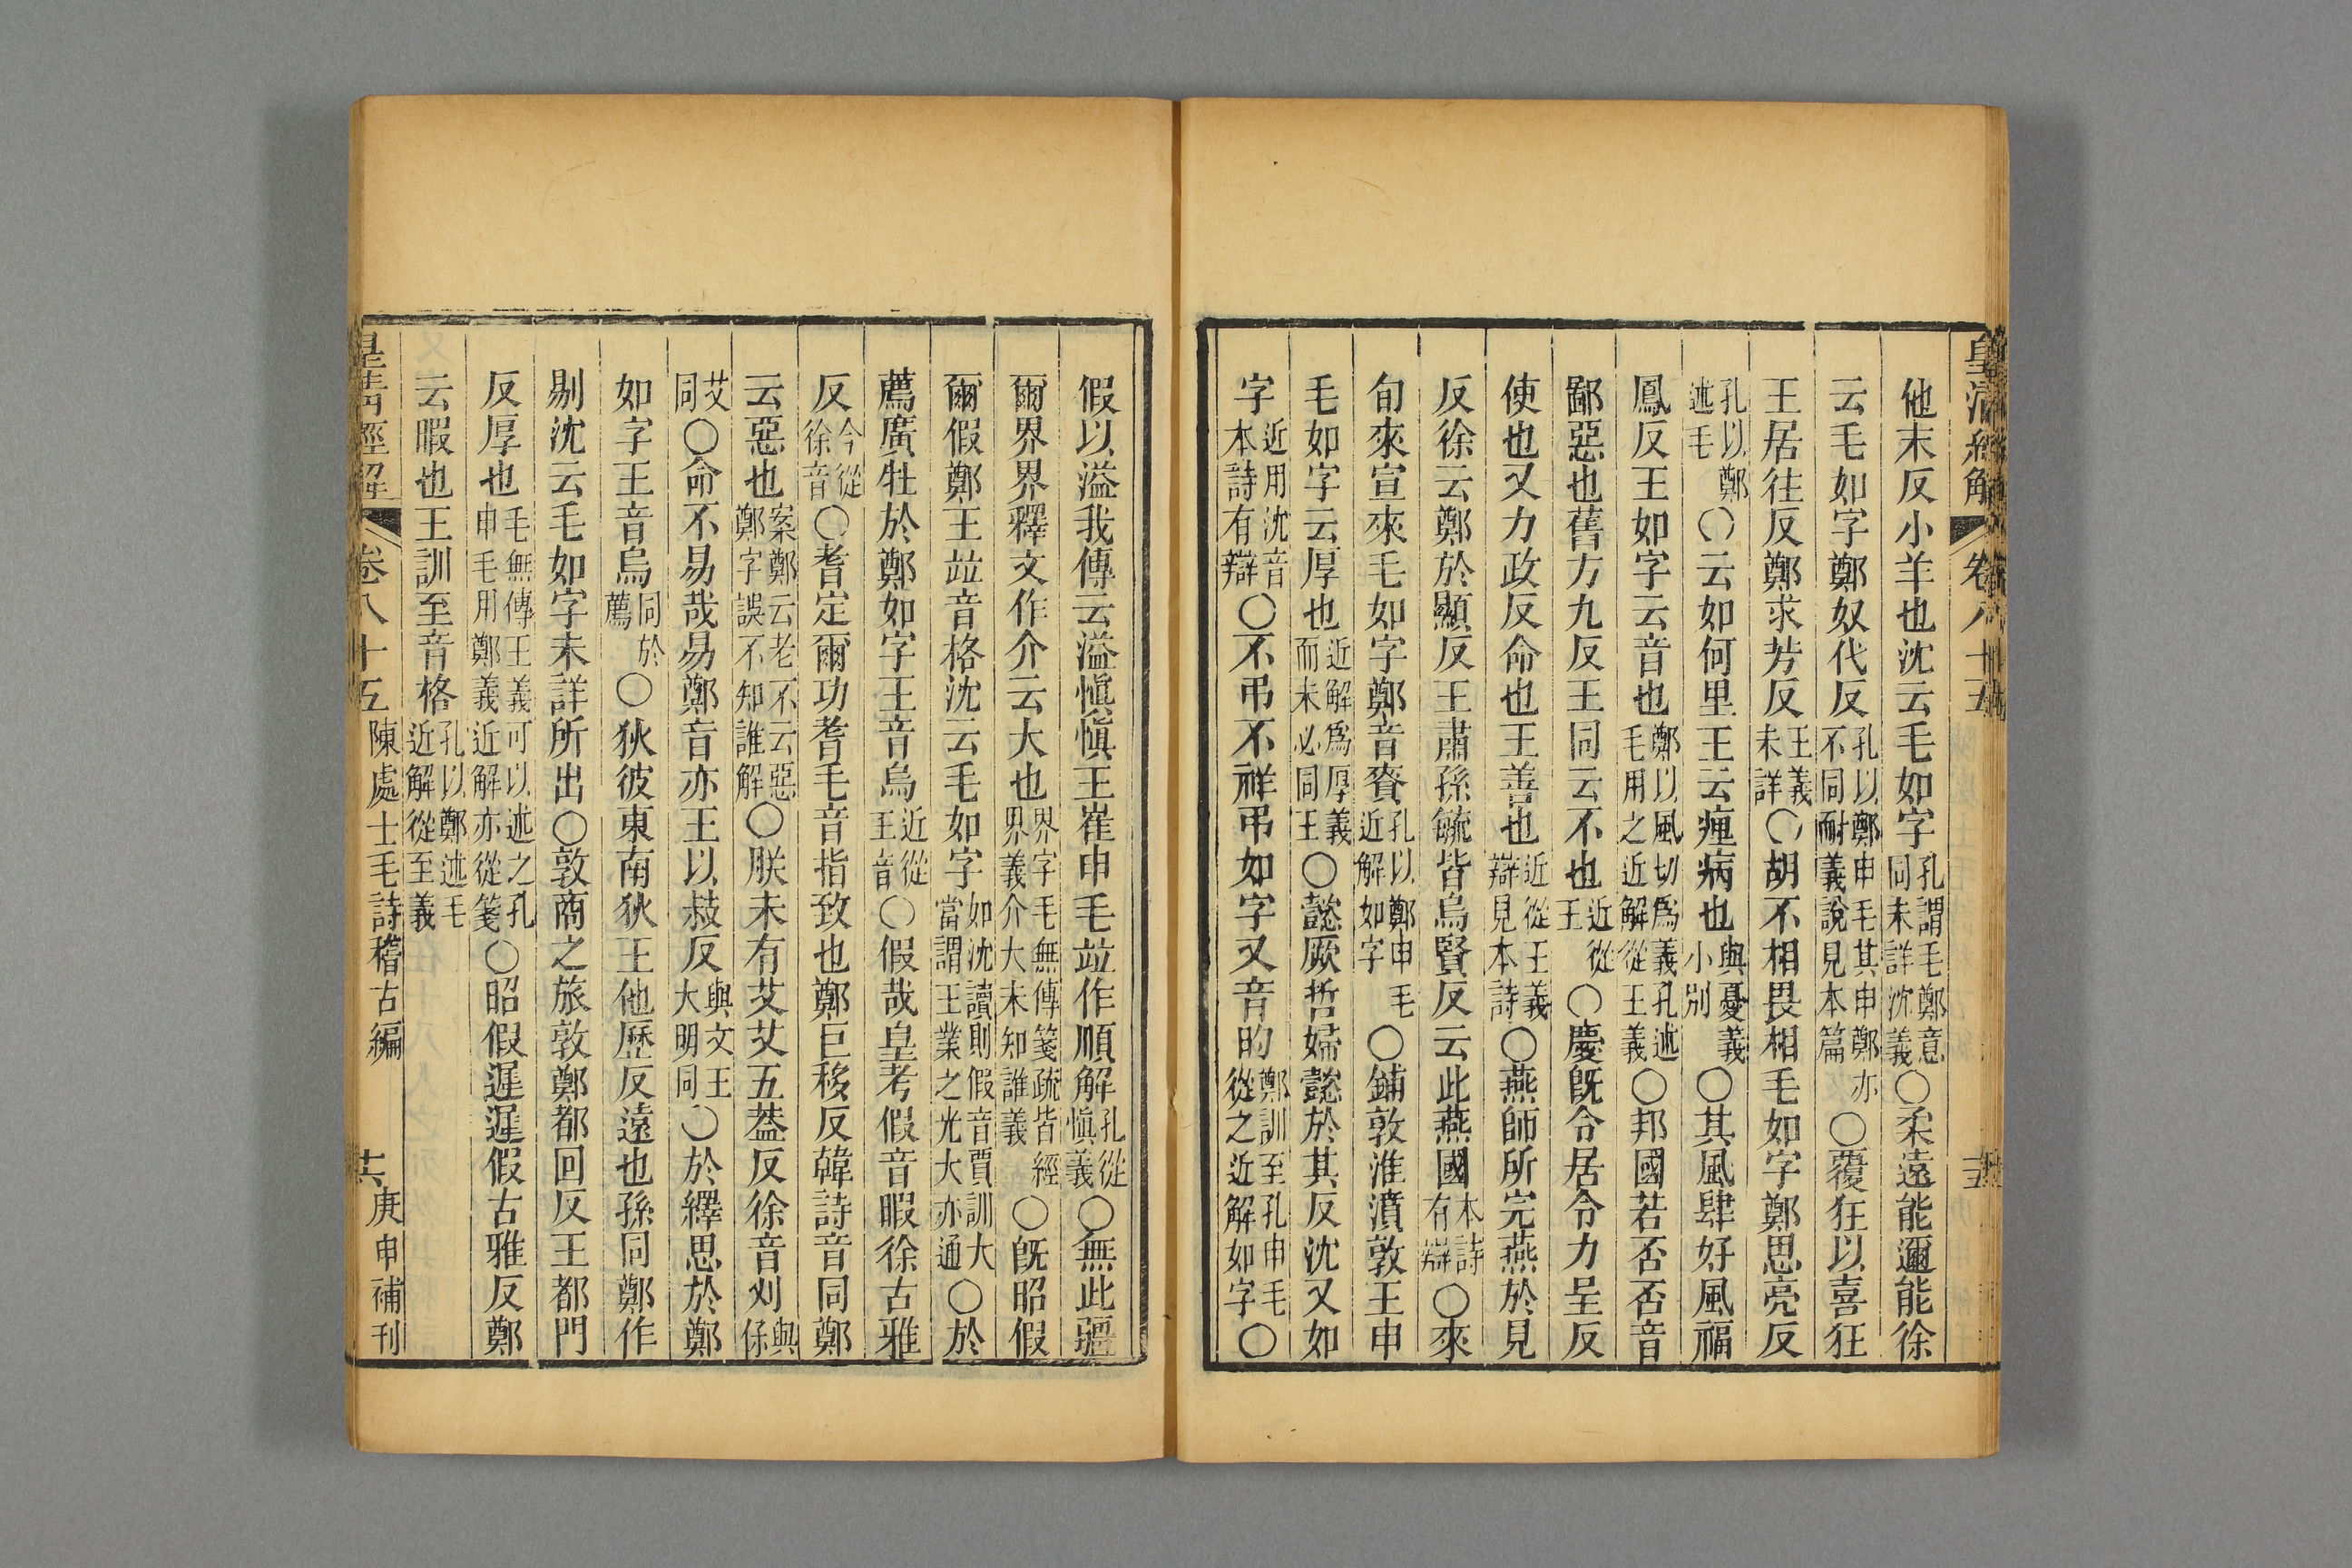 皇清經解 卷八十五
他末反小羊也沈云毛如字孔謂毛鄭意同未詳沈義○柔遠能邇能徐
云毛如字鄭奴代反孔以鄭申毛其申鄭亦不同耐義說見本篇○覆狂以喜狂
王居往反鄭求芳反王義未詳○胡不相畏相毛如字鄭思亮反
孔以鄭述毛○云如何里王云瘇病也與憂義小別○其風肆好風福
鳳反王如字云音也鄭以風切爲義孔述毛用之近解從王義○邦國若否否音
鄙惡也舊方九反王同云不也近從王○慶旣令居令力呈反
使也又力政反命也王善也近從王義辯見本詩○燕師所完燕於見
反徐云鄭於顯反王肅孫毓皆烏賢反云此燕國本詩有辯○來
旬來宣來毛如字鄭音賚孔以鄭申毛近解如字○鋪敦淮濆敦王申
毛如字云厚也近解爲厚義而未必同王○懿厥哲婦懿於其反沈又如
字近用沈音本詩有辯○不弔不祥弔如字又音旳鄭訓至孔申毛從之近解如字○
假以溢我傳云溢愼愼王崔申毛竝作順解孔從愼義○無此疆
爾界界釋文作介云大也界字毛無傳箋疏皆經界義介大未知誰義○旣昭假
爾假鄭王竝音格沈云毛如字如沈讀則假音賈訓大當謂王業之光大亦通○於
薦廣牡於鄭如字王音烏近從王音○假哉皇考假音暇徐古雅
反今從徐音○耆定爾功耆毛音指致也鄭巨移反韓詩音同鄭
云惡也案鄭云老不云惡鄭字誤不知誰解○朕未有艾艾五葢反徐音刈與俆
艾同○命不易哉易鄭音亦王以豉反與文王大明同○於繹思於鄭
如字王音烏同於薦○狄彼東南狄王他歷反遠也孫同鄭作
剔沈云毛如字未詳所出○敦商之旅敦鄭都回反王都門
反厚也毛無傳王義可以述之孔申毛用鄭義近解亦從箋○昭假遲遲假古雅反鄭
云暇也王訓至音格孔以鄭述毛近解從至義
皇清經解 卷八十五 陳處士毛詩稽古編 庚申補刊